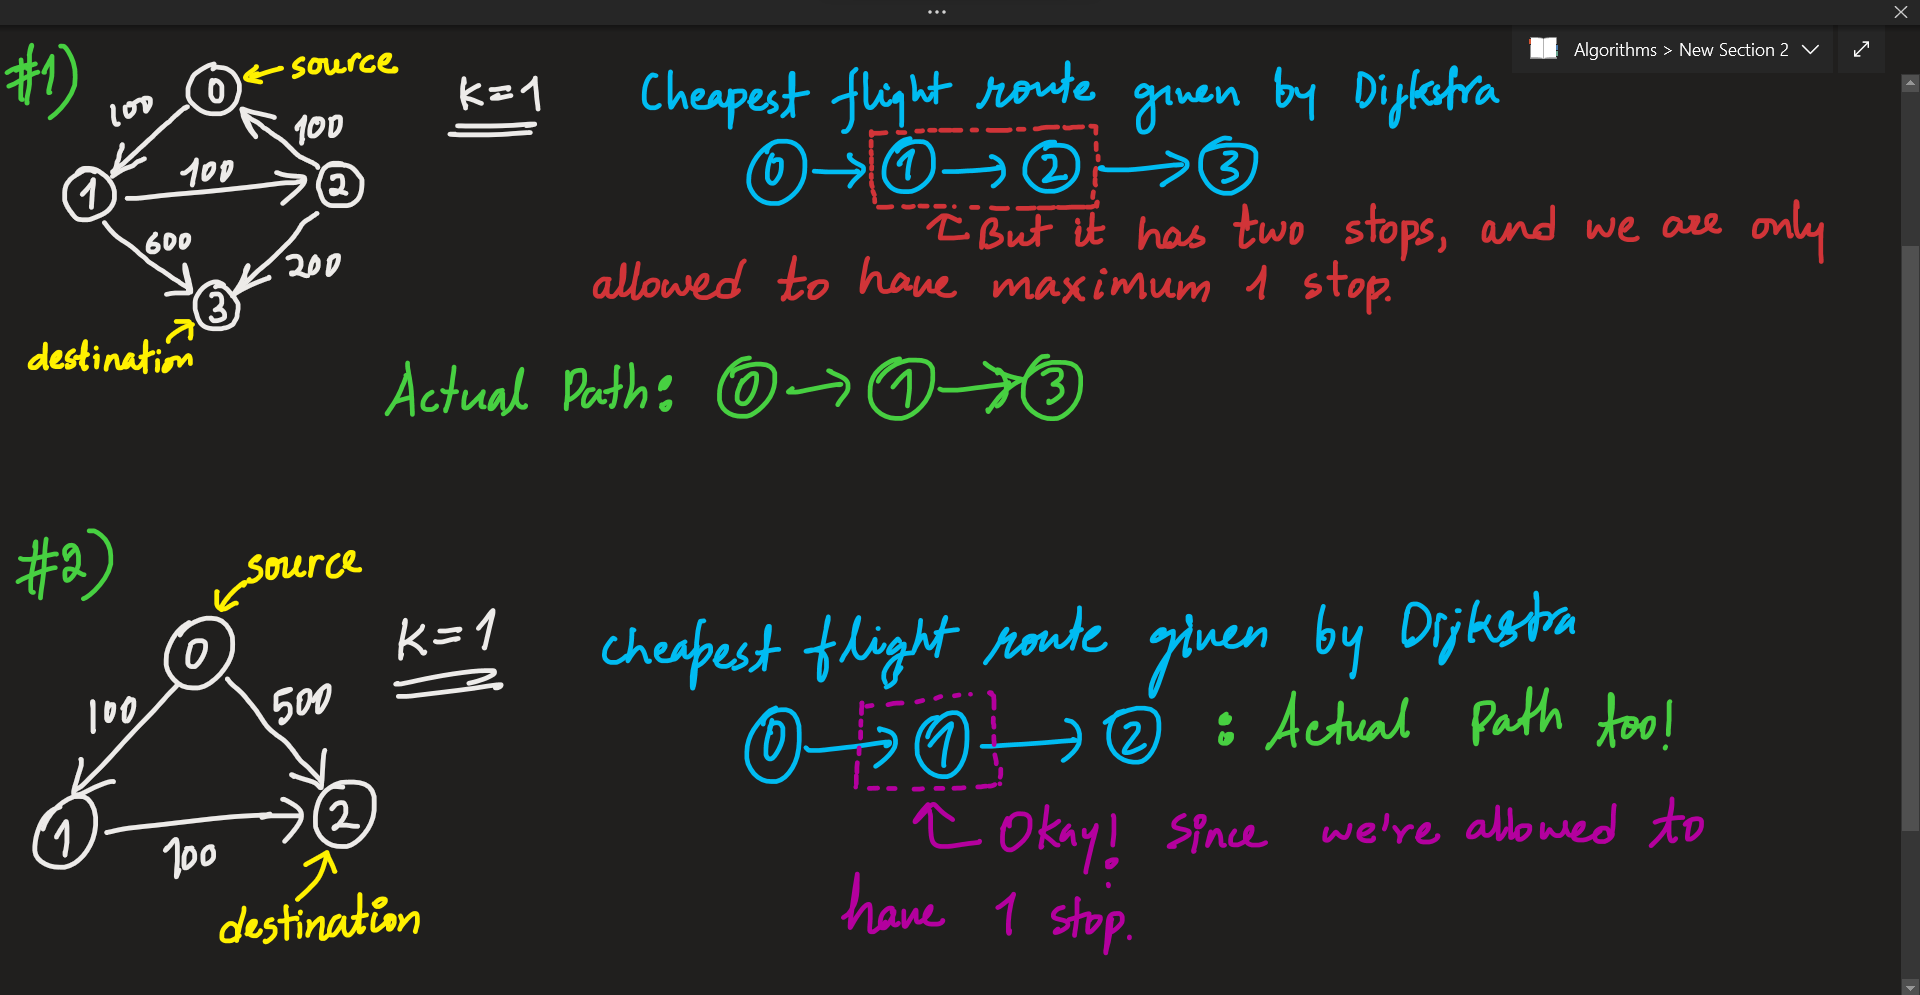 Algorithms > New Section 2
#1)
source
0
100
100
1
100
2
600
200
3
destination
K=1
Cheapest flight route given by Dijkstra
0 → 1 → 2 → 3
But it has two stops, and we are only
allowed to have maximum 1 stop.
Actual Path: 0 → 1 → 3
#2)
source
0
100
500
1
100
2
destination
K=1
cheapest flight route given by Dijkstra
0 → 1 → 2 : Actual Path too!
Okay! Since we're allowed to
have 1 stop.